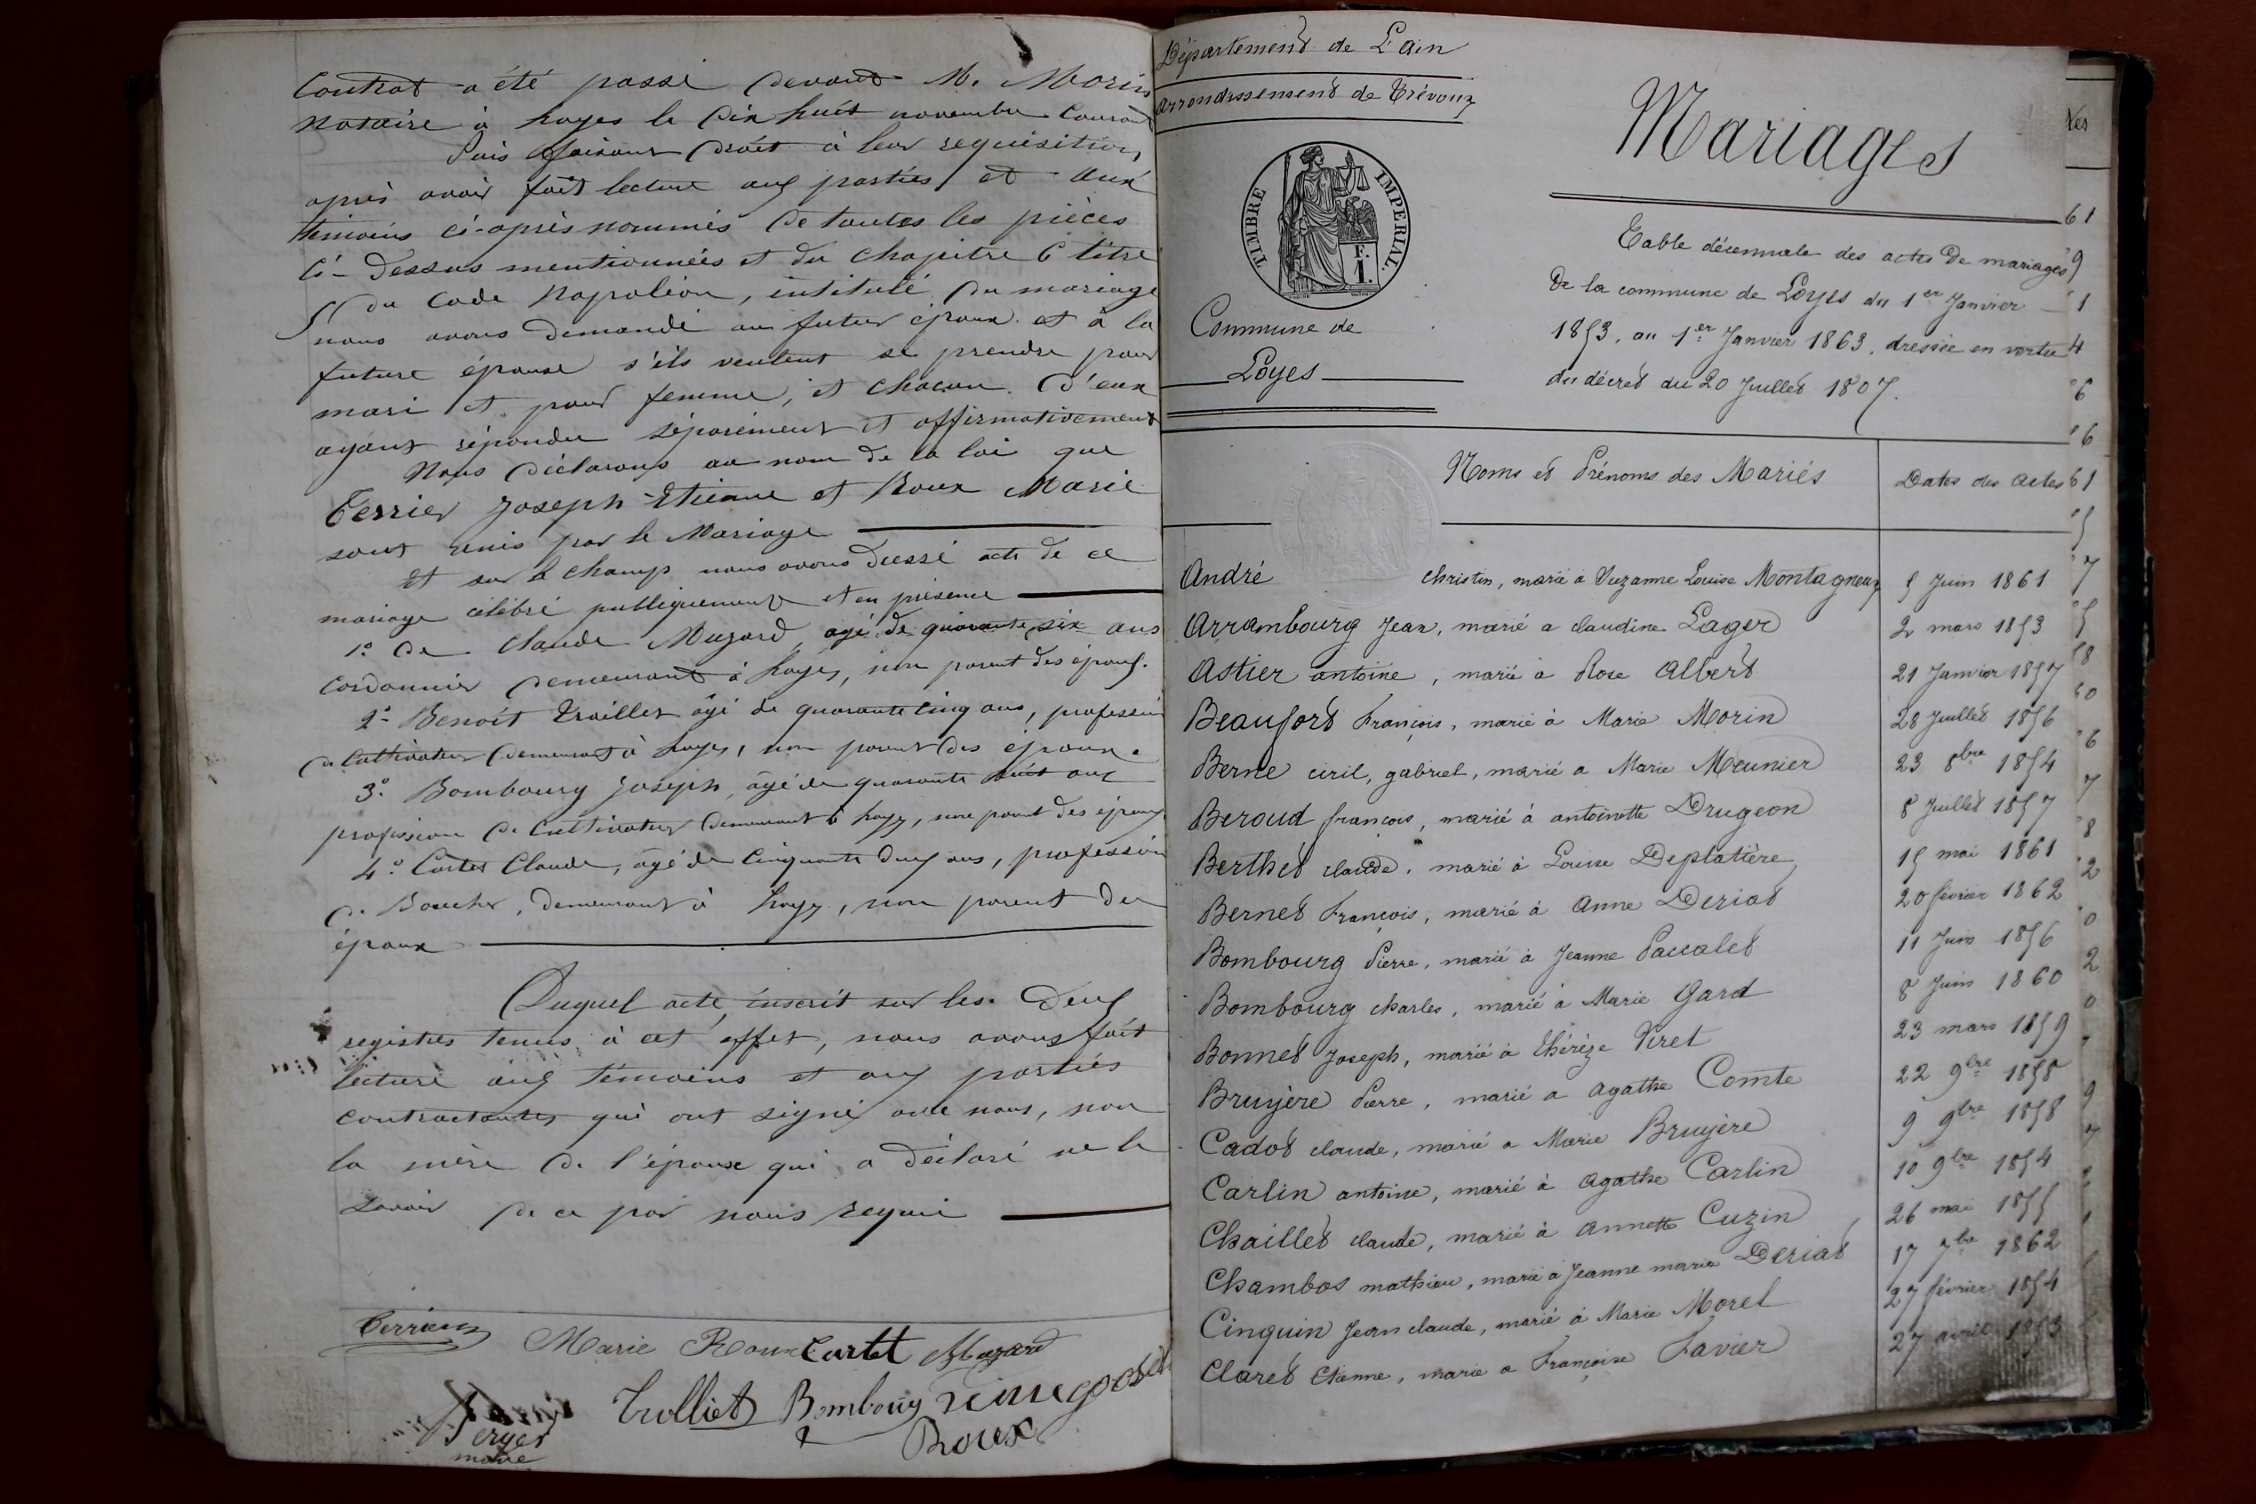 Contrat a été passé devant M. Morin
notaire à Loyes le dix huit novembre courant
Puis faisant droit à leur requisition,
après avoir fait lecture aux parties et aux
témoins ci-après nommés de toutes les pièces
ci-dessus mentionnées et du chapitre 6 titre
5 du Code Napoléon, intitulé du mariage
nous avons demandé au futur époux et à la
future épouse s'ils veulent se prendre pour
mari et pour femme, et chacun d'eux
ayant répondu séparément et affirmativement
Nous déclarons au nom de la loi que
Terrier Joseph Etienne et Roux Marie
sont unis par le Mariage
Et sur le champ nous avons dressé acte de ce
mariage célébré publiquement et en présence
1º De Claude Mazard, agé de quarante six ans
cordonnier demeurant à Loyes, non parent des époux.
2º Benoit Trolliet âgé de quarante cinq ans, profession
de Cultivateur demeurant à Loyes, non parent des époux.
3º Bombourg Joseph, âgé de quarante huit ans
profession de Cultivateur demeurant à Loyes, non parent des époux
4º Curtet Claude, âgé de cinquante deux ans, profession
de Boucher, demeurant à Loyes, non parent des
époux
Duquel acte, inscrit sur les deux
registres tenus à cet effet, nous avons fait
lecture aux témoins et aux parties
contractantes qui ont signé avec nous, non
la mère de l'épouse qui a déclaré ne le
savoir de ce par nous requis
Marie Roux Curtet Mazard
Trolliet Bombourg
Roux
maire
Département de L'ain
Arrondissement de Trévoux
TIMBRE IMPERIAL.
F.
1.
Commune de
Loyes
Mariages
Table décennale des actes de mariages
De la commune de Loyes du 1er Janvier
1853, au 1er Janvier 1863, dressée en vertu
du décret du 20 Juillet 1807.
Noms et Prénoms des Mariés Dates des actes
André christin, marié à Suzanne Louise Montagneux 5 Juin 1861
Arrambourg Jean, marié a claudine Lager 2 mars 1853
Astier antoine, marié a Rose Albert 21 Janvier 1857
Beaufort François, marié à Marie Morin 28 Juillet 1856
Berne ciril, gabriel, marié a Marie Meunier 23 8bre 1854
Beroud françois, marié à antoinette Drugeon 8 Juillet 1857
Berthet claude, marié à Louise Deplatière 15 mai 1861
Bernet François, marié à Anne Deriat 20 février 1862
Bombourg Pierre, marié à Jeanne Pascalet 11 Juin 1856
Bombourg charles, marié à Marie Gard 8 Juin 1860
Bonnet Joseph, marié à Thérèze Viret 23 mars 1859
Bruyère Pierre, marié a agathe Comte 22 9bre 1858
Cadot claude, marié a Marie Bruyère 9 9bre 1858
Carlin antoine, marié à Agathe Carlin 10 9bre 1854
Chaillet claude, marié à annette Cuzin 26 mai 1855
Chambos mathieu, marié à Jeanne marie Deriat 17 7bre 1862
Cinquin Jean claude, marié à Marie Morel 27 février 1854
Claret Etienne, marié a Françoise Favier 27 avril 1853